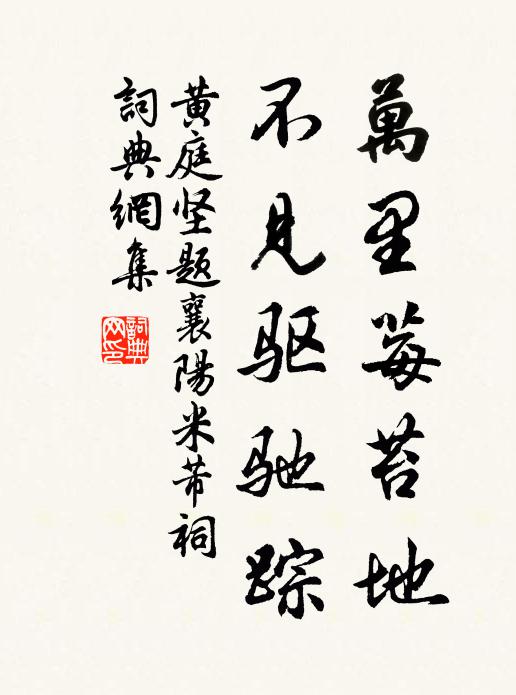 萬里莓苔地
不見驱驰踪
黄庭坚题襄陽米芾祠
詞典網集
詞典网印